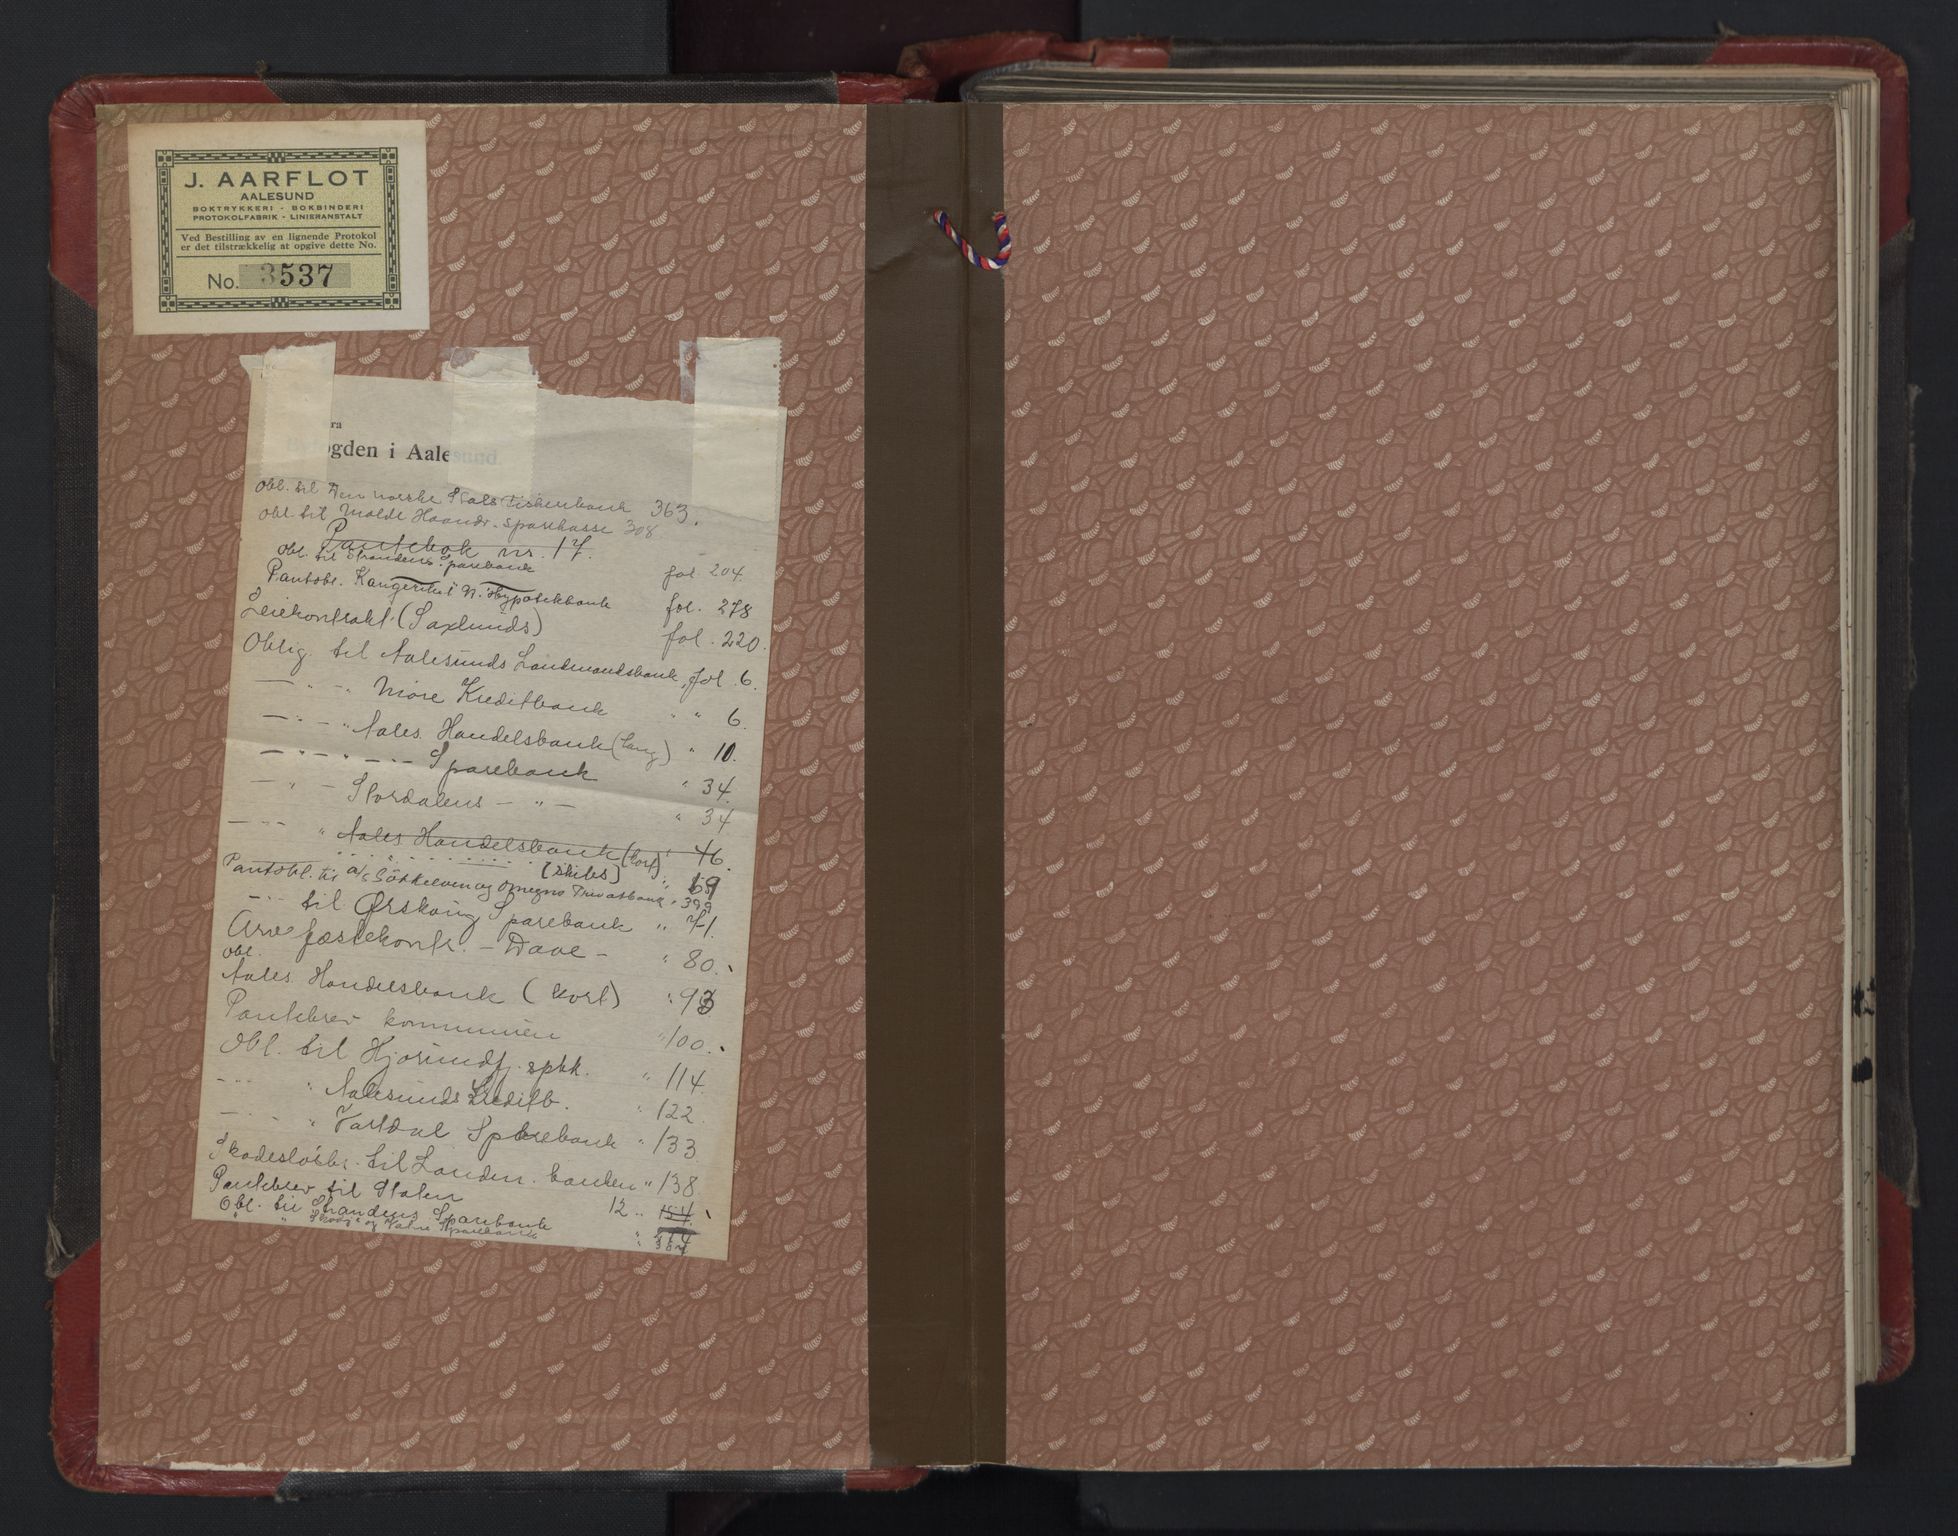 J. AARFLOT
AALESUND
BOKTRYKKERI - BOKBINDERI
PROTOKOLFABRIK - LINIERANSTALT
Ved Bestilling av en lignende Protokol
er det tilstrækkelig at opgive dette No.
No. 3537
ra
ogden i Aalesund
Obl. til Den norske Stats Fiskeribank 363.
Obl. til Molde Haandv. sparekasse 308.
Pantebok nr. 17.
Obl. til Strandens Sparebank fol. 204.
Pantobl. N. Hypotekbank fol. 278
Leiekontrakt (Saxlunds) fol. 220.
Oblig. til Aalesunds Landmandsbank, fol. 6.
— " — " Møre Kreditbank " " 6.
— " — " Aales. Handelsbank (lang) " 10.
— " — " — " — Sparebank " 34.
— " — Stordalens — " — " 34
— " — " Aales Handelsbank (kort) " 46.
(skibs) " 69
Pantobl. til a/s Søkkelven og Omegns Privatbank " 399
— " — til Ørskoug Sparebank " 71.
Arvefæstekontr. — Dave — " 80.
Obl.
Aales. Handelsbank (kort) " 93
Pantebrev kommunen " 100.
Obl. til Hjørundfj. spbk. " 114.
— " — " Aalesunds Kreditb. " 122.
— " — " Vartdal Sparebank " 133
Skadesløsbr. til Landm. banken " 138.
Pantebrev til Staten 12 " 154.
Obl. til Strandens Sparebank
" " Skodje og Vatne Sparebank " 387